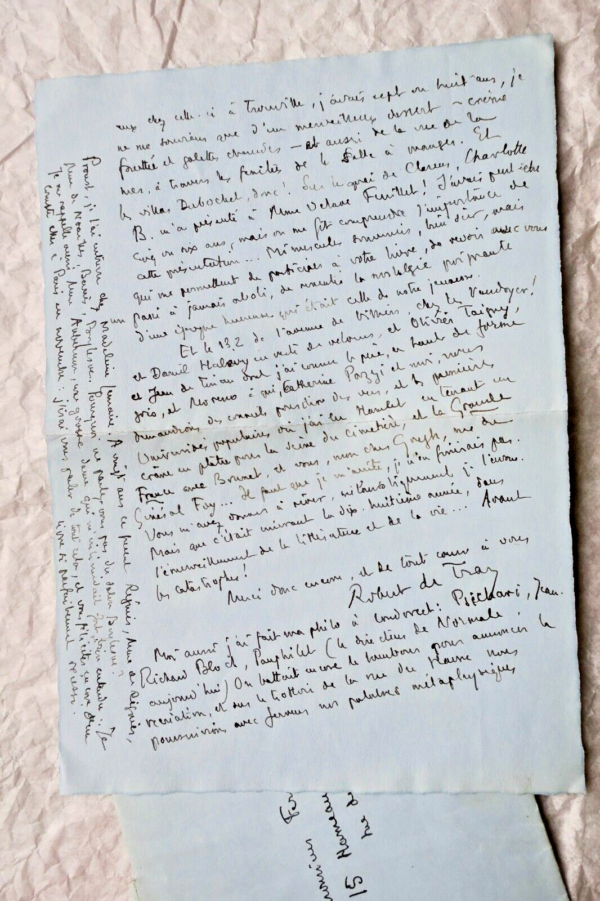 eux chez celle-ci à Trouville, j'avais sept ou huit ans, je
ne me souviens que d'un merveilleux dessert – crème
fouettée et galettes chaudes – et aussi de la vue de la
mer, à travers les fenêtres de la salle à manger. Et
la villa Dubochet, donc ! Sur le quai de Clarens, Charlotte
B. m'a présenté à Mme Octave Feuillet ! J'avais peut-être
cinq ou six ans, mais on me fit comprendre l'importance de
cette présentation... Minuscules souvenirs, bien sûr, mais
qui me permettent de participer à votre livre, de revoir avec vous
passé à jamais aboli, de ressentir la nostalgie poignante
d'une époque heureuse qui était celle de notre jeunesse.
Et le 132 de l'avenue de Villiers, chez les Vaudoyer !
et Daniel Halévy en veste de velours, et Olivier Taigny,
et Jean de Tinan dont j'ai connu le père, en haut de forme
gris, et Moreno à qui, Catherine Pozzi et moi, nous
demandions des conseils pour dire des vers, et les premières
Universités populaires où j'ai lu Hamlet en tenant un
crâne en plâtre pour la scène du cimetière, et la Grande
France avec Bournet, et vous, mon cher Gregh, rue du
Général Foy... Il faut que je m'arrête, je n'en finirais pas.
Vous m'avez donné à rêver,
Mais que c'était enivrant la dix-huitième année, dans
l'émerveillement de la littérature et de la vie... Avant
les catastrophes !
Merci donc encore, et de tout cœur à vous
Robert de Traz
Moi aussi j'ai fait ma philo à Condorcet : Psichari, Jean-
Richard Bloch, Pauphilet (le directeur de Normale,
aujourd'hui) On battait encore le tambour pour annoncer la
récréation, et sur le trottoir de la rue du Havre nous
poursuivions avec ferveur nos palabres métaphysiques
Proust, je l'ai entrevu chez Madeleine Lemaire. A vingt ans ce furent Régnier, Mme de Régnier,
Mme de Noailles, Barrès, Boylesve. Pourquoi ne parlez-vous pas du salon
Je me rappelle aussi Mme Aubernon, une grosse dame qui m'intimidait
compte être à Paris en novembre. J'irai vous parler de tout cela, et vous féliciter encore d'un
livre si parfaitement réussi.
15 Hameau